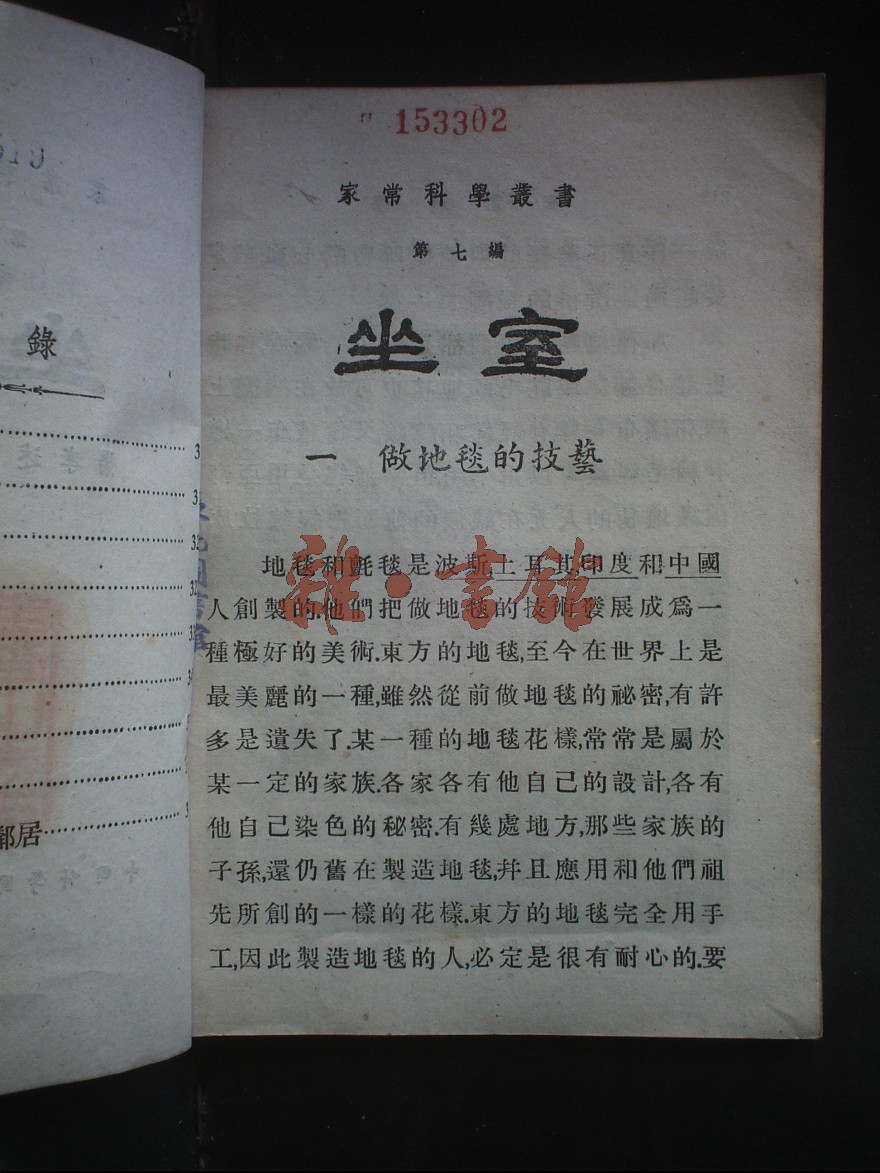 錄
3
3
32
32
33
34
3
3
3
鄰居
153302
家常科學叢書
第七編
坐室
一 做地毯的技藝
地毯和氈毯是波斯,土耳其,印度和中國
人創製的.他們把做地毯的技術發展成爲一
種極好的美術.東方的地毯,至今在世界上是
最美麗的一種,雖然從前做地毯的祕密,有許
多是遺失了.某一種的地毯花樣,常常是屬於
某一定的家族.各家各有他自己的設計,各有
他自己染色的秘密.有幾處地方,那些家族的
子孫,還仍舊在製造地毯,幷且應用和他們祖
先所創的一樣的花樣.東方的地毯完全用手
工,因此製造地毯的人,必定是很有耐心的.要
雜·書館